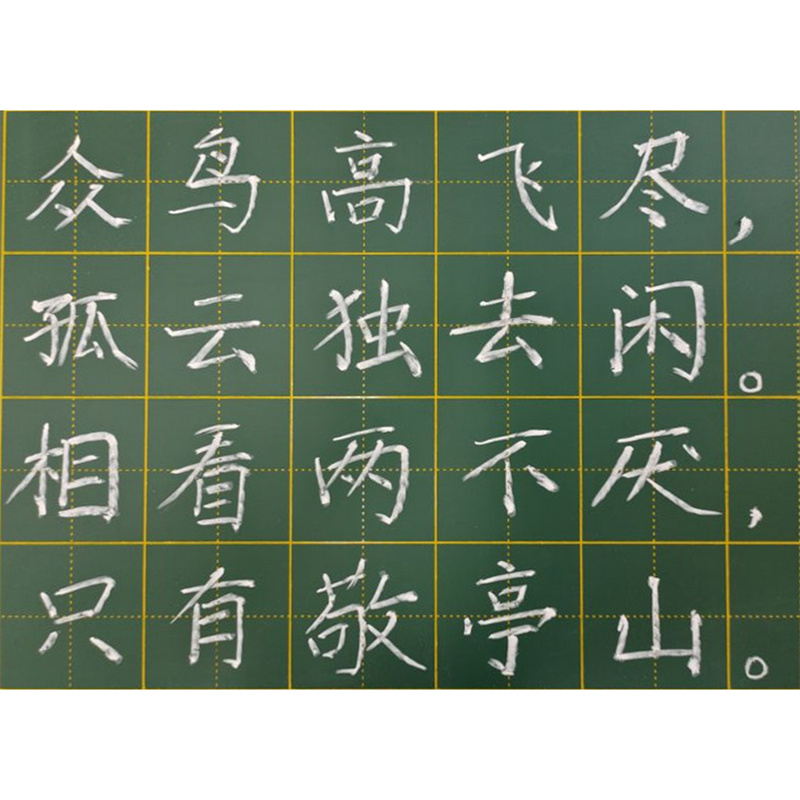 众鸟高飞尽，
孤云独去闲。
相看两不厌，
只有敬亭山。